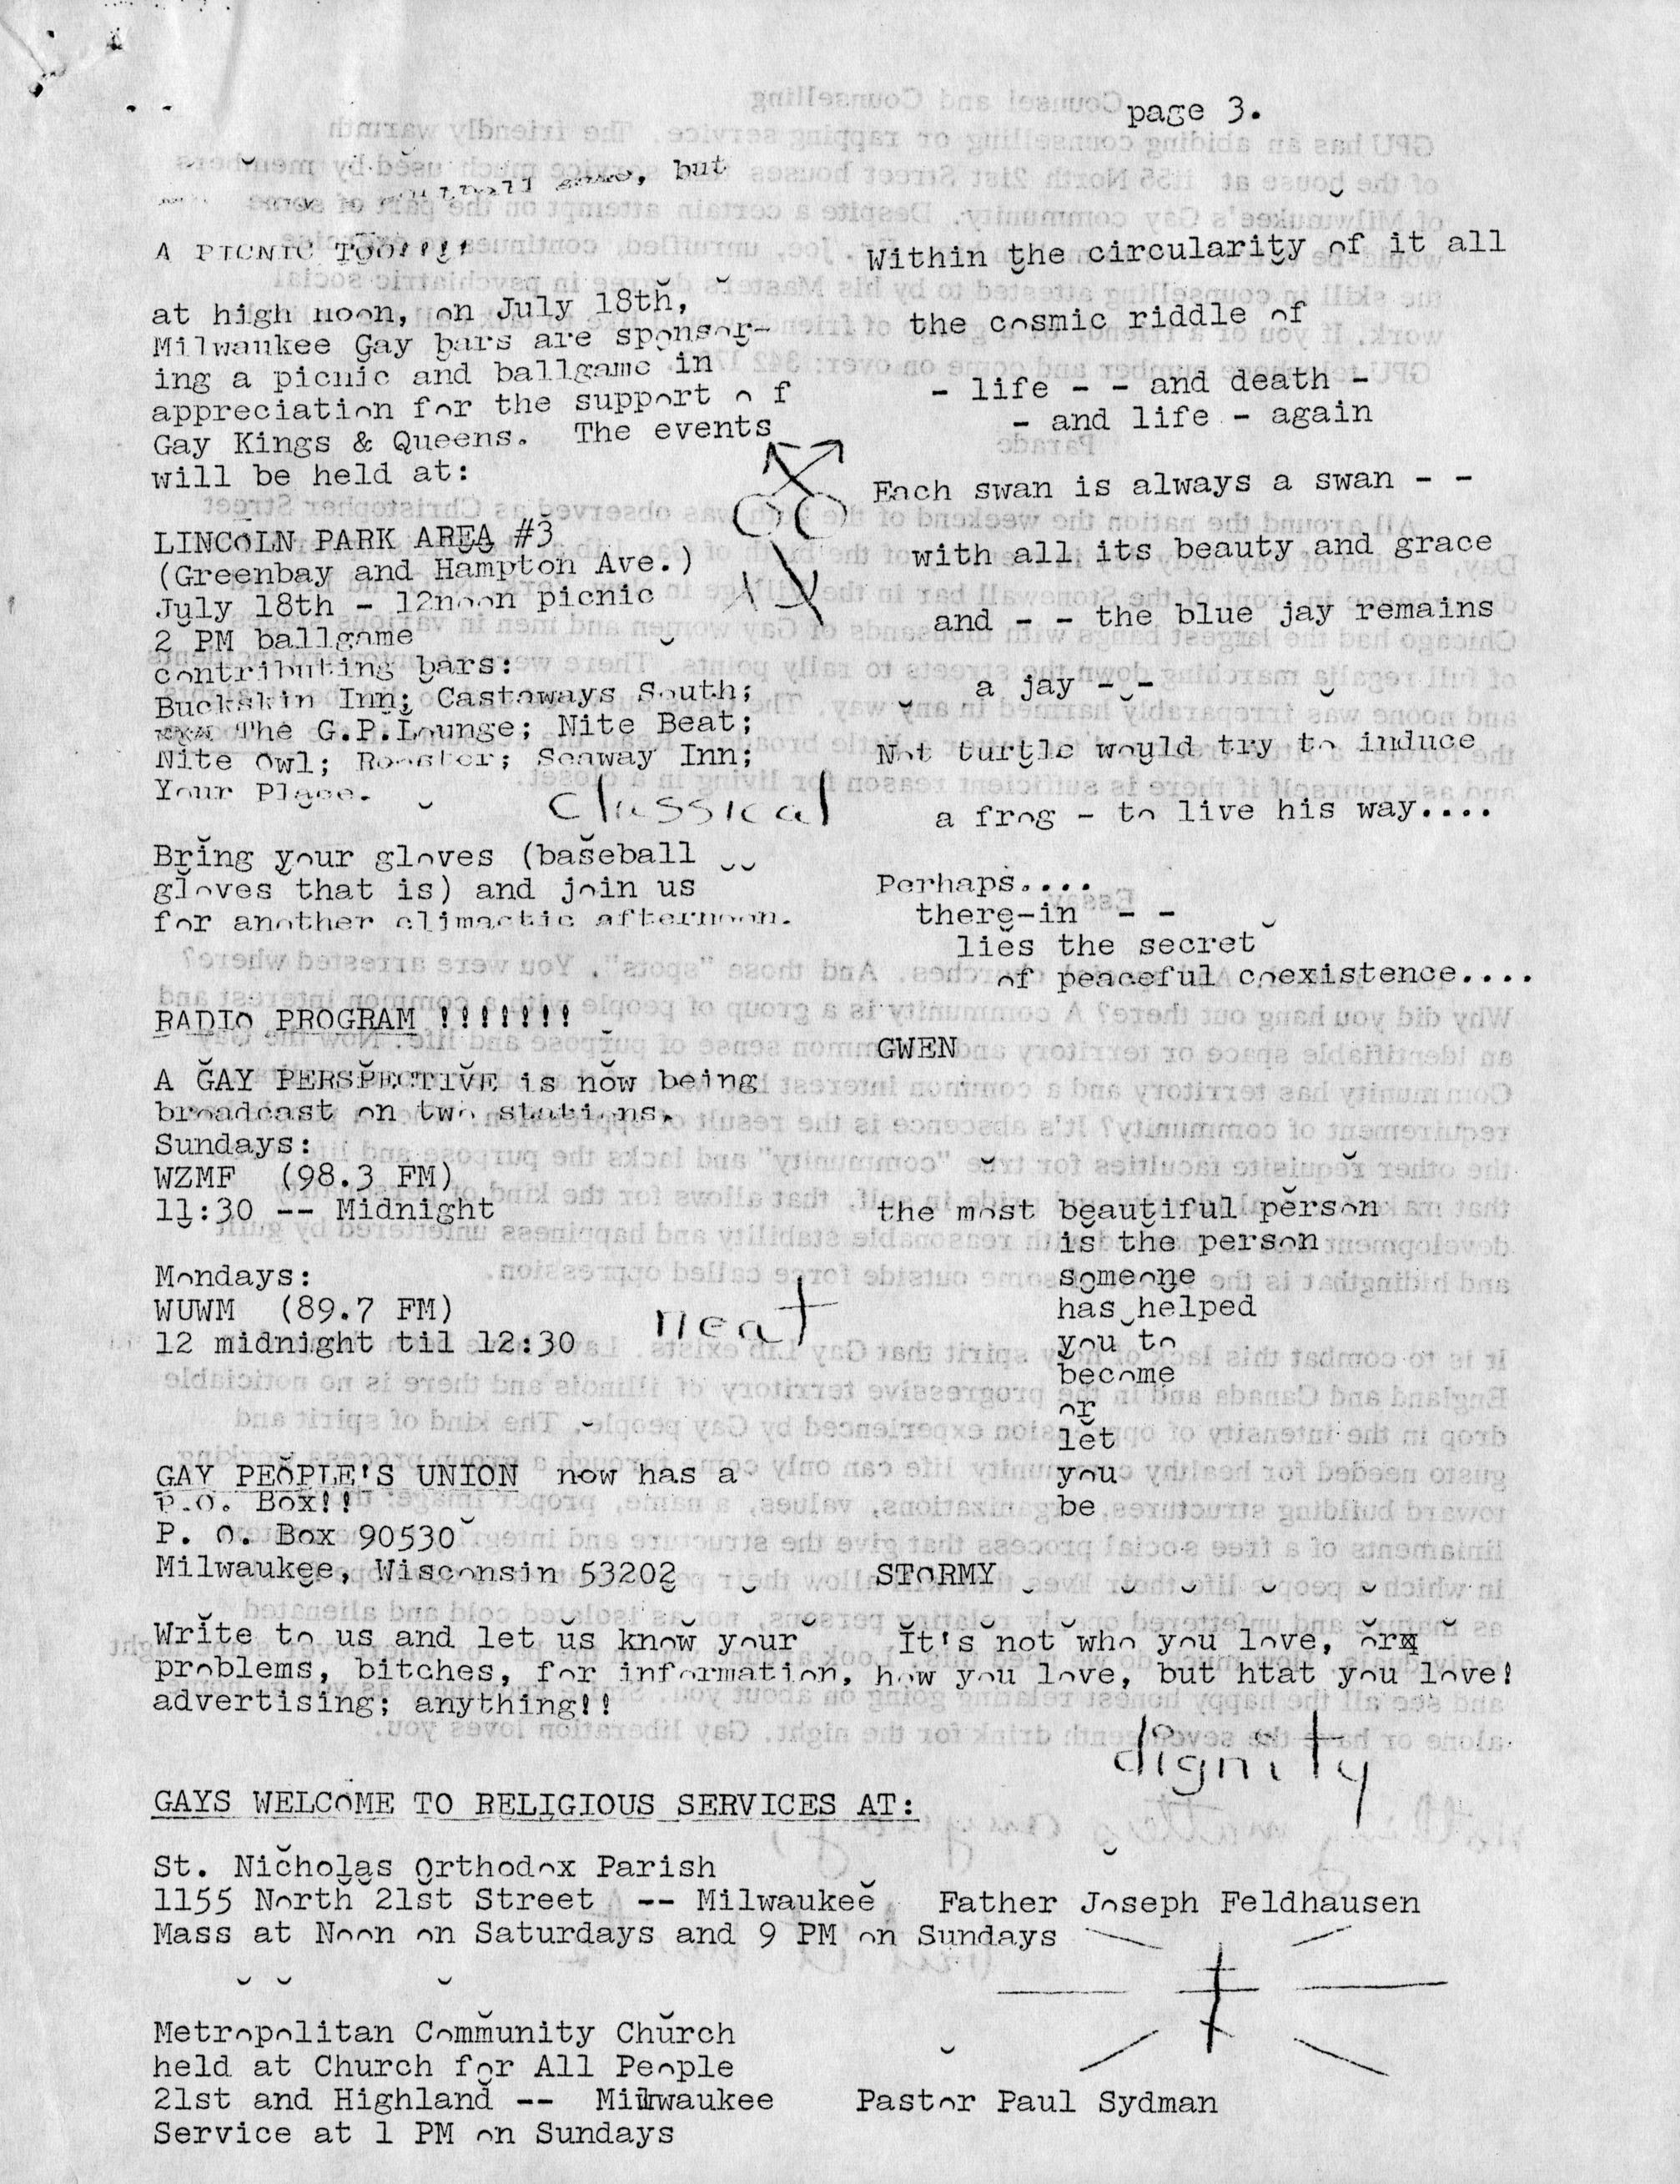 page 3.
but
A PICNIC TOO!!!!
at high noon, on July 18th,
Milwaukee Gay bars are sponsor-
ing a picnic and ballgame in
appreciation for the support o f
Gay Kings & Queens.  The events
will be held at:
LINCOLN PARK AREA #3
(Greenbay and Hampton Ave.)
July 18th - 12noon picnic
2 PM ballgame
contributing bars:
Buckskin Inn; Castaways South;
The G.P.Lounge; Nite Beat;
Nite Owl; Rooster; Seaway Inn;
Your Place.
classical
Bring your gloves (baseball
gloves that is) and join us
for another climactic afternoon.
RADIO PROGRAM !!!!!!!
A GAY PERSPECTIVE is now being
broadcast on two stations.
Sundays:
WZMF  (98.3 FM)
11:30 -- Midnight
Mondays:
WUWM  (89.7 FM)
12 midnight til 12:30
neat
GAY PEOPLE'S UNION  now has a
P.O. Box!!
P. O. Box 90530
Milwaukee, Wisconsin 53202
Write to us and let us know your
problems, bitches, for information,
advertising; anything!!
Within the circularity of it all
the cosmic riddle of
- life - - and death -
- and life - again
Each swan is always a swan - -
with all its beauty and grace
and - - the blue jay remains
a jay - -
Not turtle would try to induce
a frog - to live his way....
Perhaps....
there-in  - -
lies the secret
of peaceful coexistence....
GWEN
the most beautiful person
is the person
someone
has helped
you to
become
or
let
you
be
STORMY
It's not who you love, or
how you love, but htat you love!
dignity
GAYS WELCOME TO RELIGIOUS SERVICES AT:
St. Nicholas Orthodox Parish
1155 North 21st Street  -- Milwaukee   Father Joseph Feldhausen
Mass at Noon on Saturdays and 9 PM on Sundays
Metropolitan Community Church
held at Church for All People
21st and Highland --  Milwaukee    Pastor Paul Sydman
Service at 1 PM on Sundays